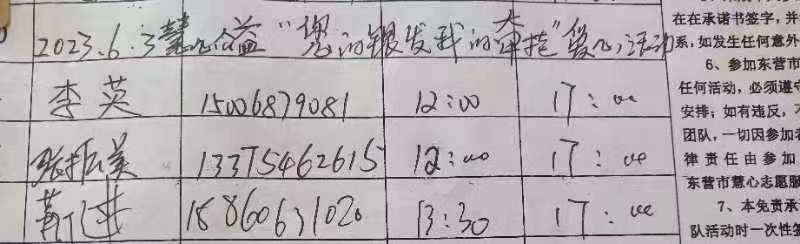 2023.6.3慧心公益“您的银发我的牵挂”爱心活动
李英 15006879081 12:00 17:00
张振美 13375462615 12:00 17:00
15860631020 13:30 17:00
在在承诺书签字，并
系，如发生任何意外
6、参加东营市
任何活动，必须遵守
安排；如有违反，
团队，一切因参加者
律责任由参加
东营市慧心志愿服
7、本免责承
队活动时一次性签